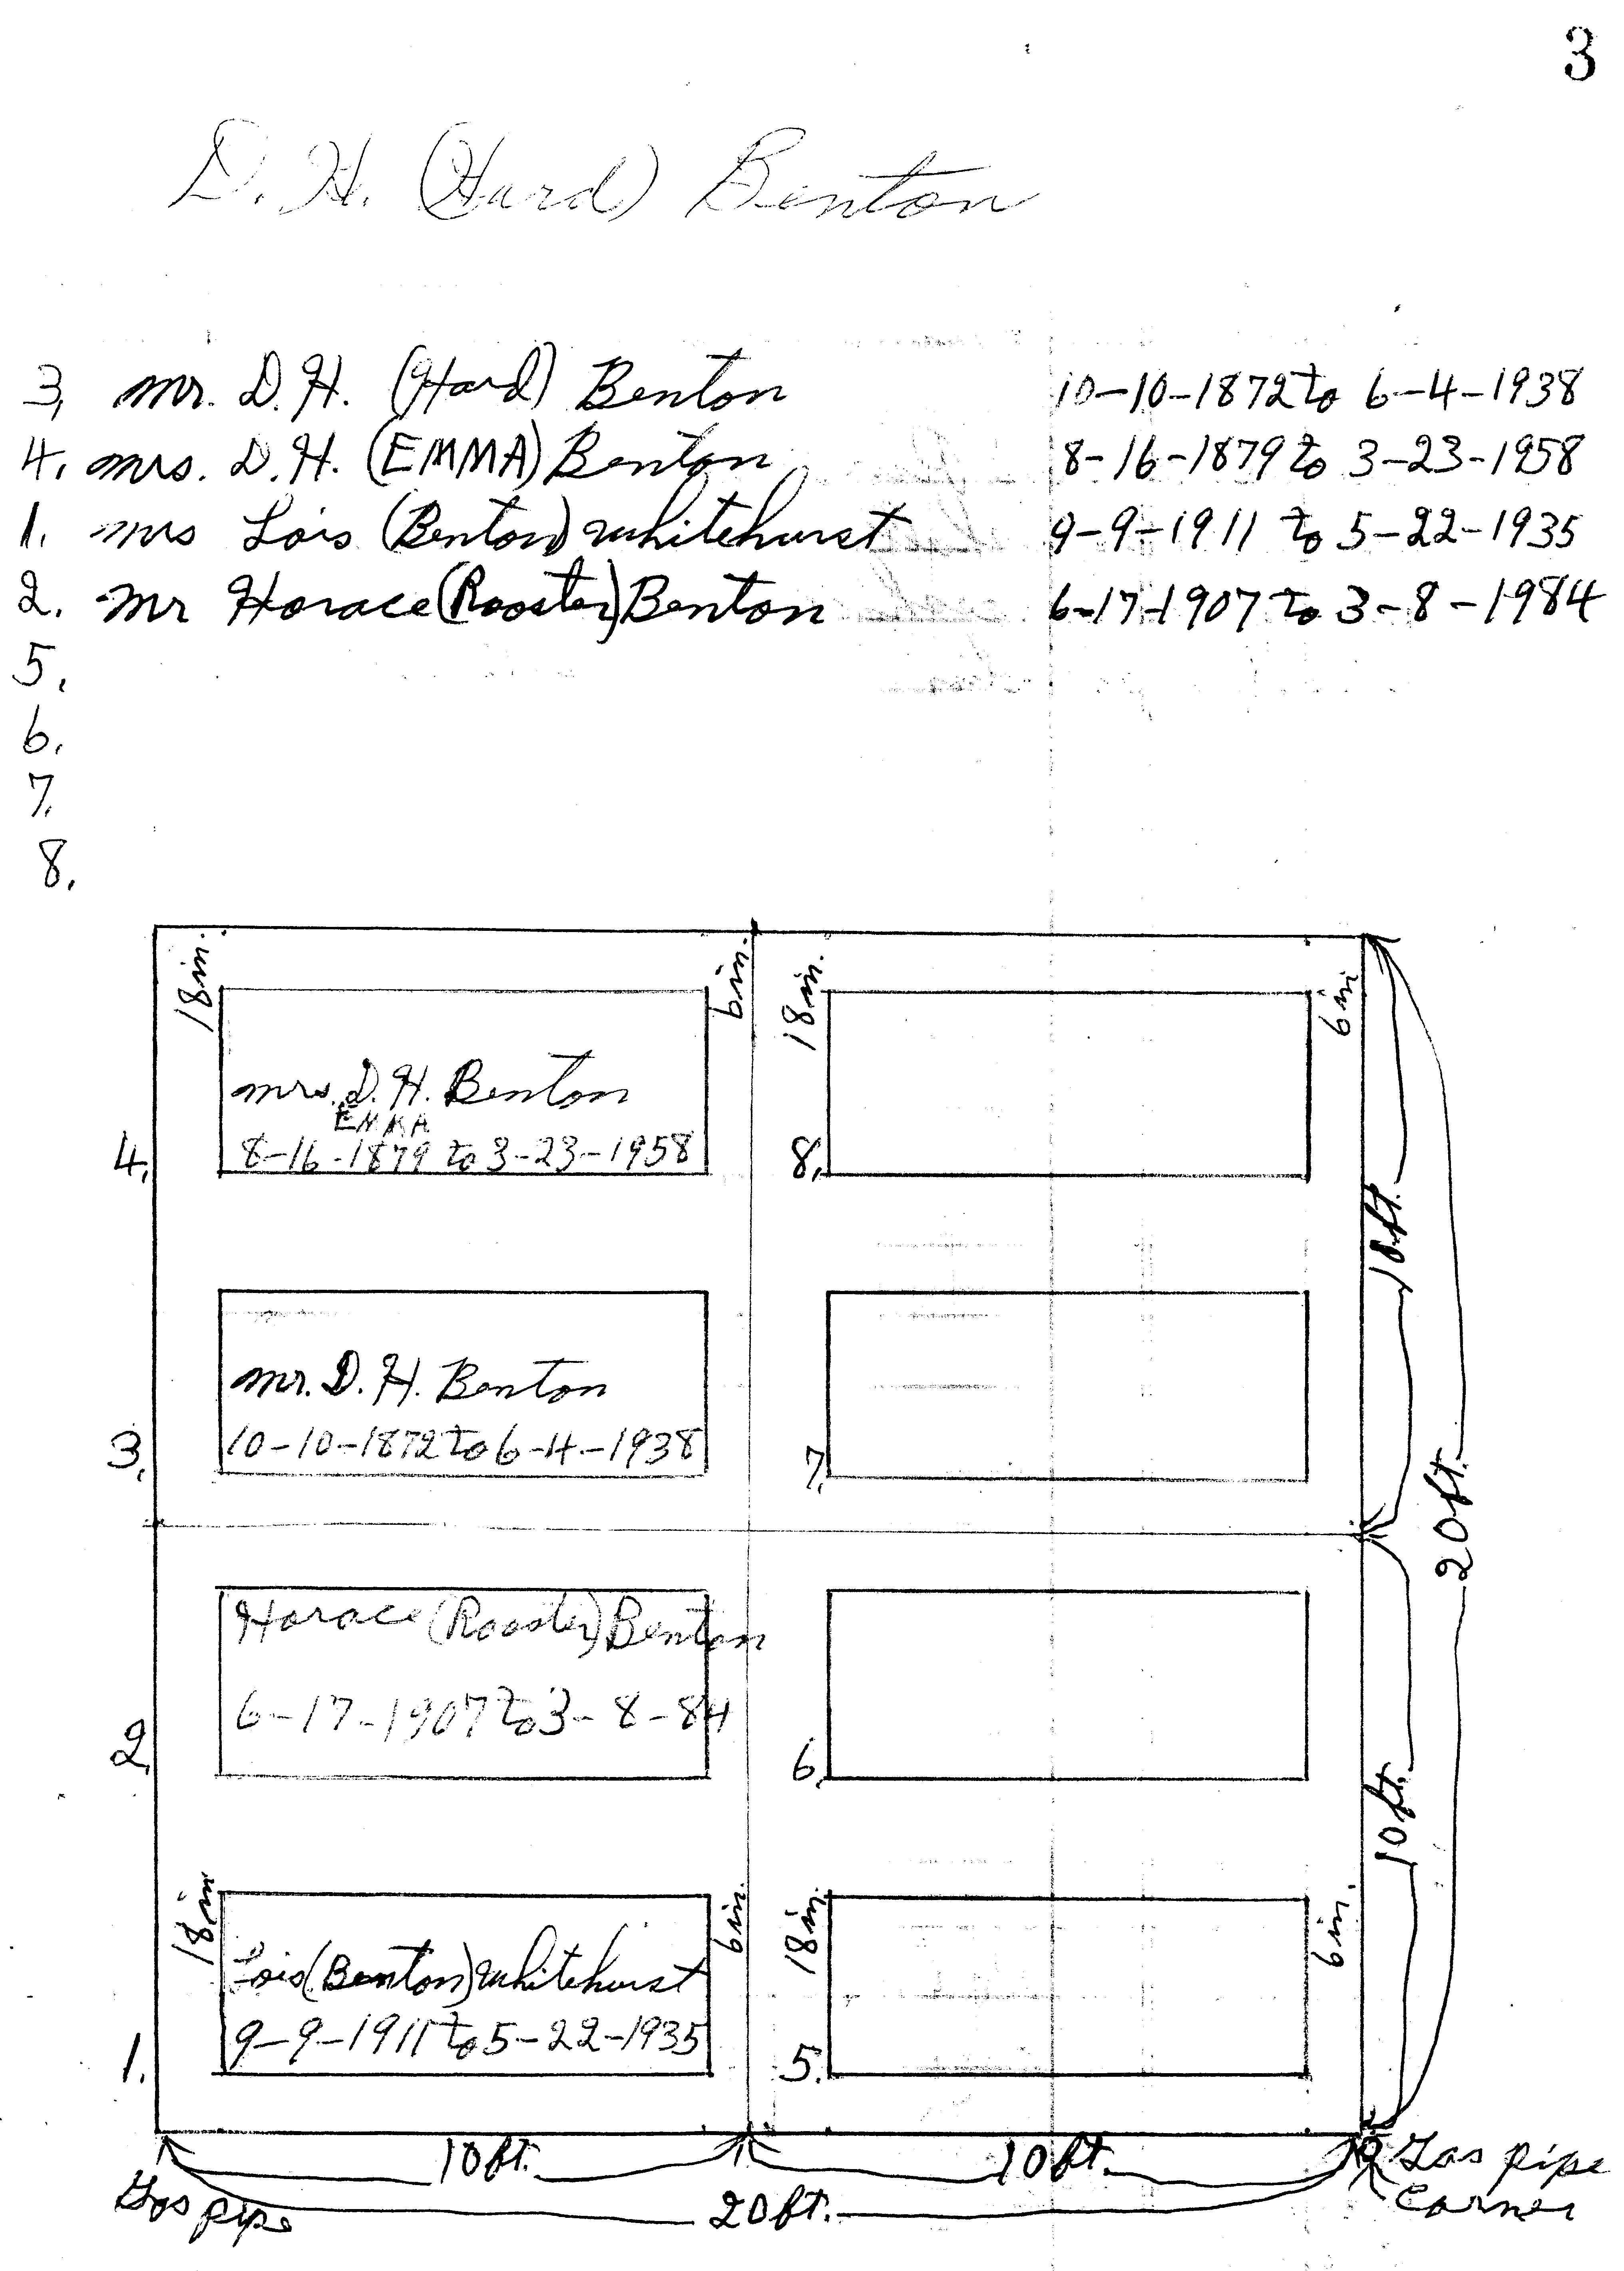 3
D. H. (Hard) Benton
3, mr. D. H. (Hard) Benton 10-10-1872 to 6-4-1938
4. mrs. D. H. (EMMA) Benton 8-16-1879 to 3-23-1958
1. mrs Lois (Benton) whitehurst 9-9-1911 to 5-22-1935
2. mr Horace (Rooster) Benton 6-17-1907 to 3-8-1984
5.
6.
7.
8.
18 in. 6 in. 18 in. 6 in
mrs. D. H. Benton
EMMA
8-16-1879 to 3-23-1958
4. 8.
10 ft.
mr. D. H. Benton
10-10-1872 to 6-4-1938
3. 7.
20 ft.
Horace (Rooster) Benton
6-17-1907 to 3-8-84
2. 6.
10 ft.
18 in 6 in. 18 in. 6 in.
Lois (Benton) whitehurst
9-9-1911 to 5-22-1935
1. 5.
10 ft. 10 ft. Gas pipe
Gas pipe 20 ft. corner